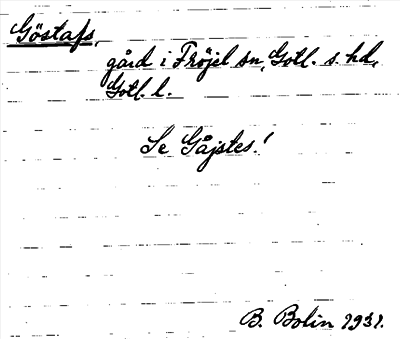 Göstafs,
gård i Fröjel sn, Gotl. s. hd,
Gotl. l.
Se Gåjstes!
B. Bolin 1931.